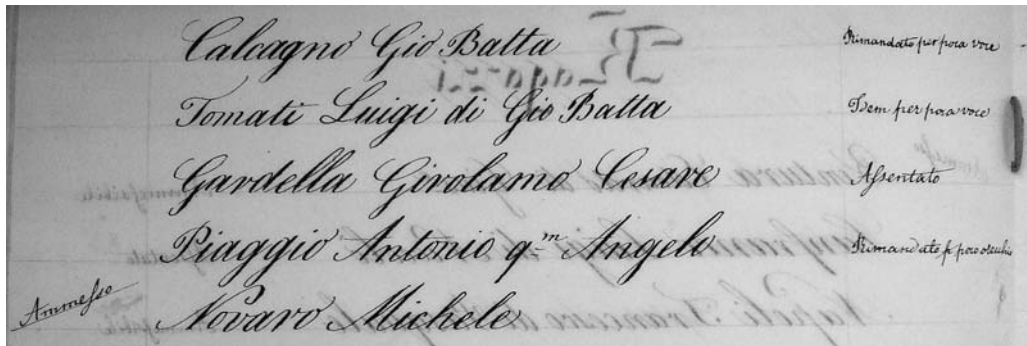 Calcagno Gio Batta Rimandato per poca voce
Tomati Luigi di Gio Batta Idem per poca voce
Gardella Girolamo Cesare Assentato
Piaggio Antonio q.m Angelo Rimandato p poco orecchio
Ammesso Novaro Michele